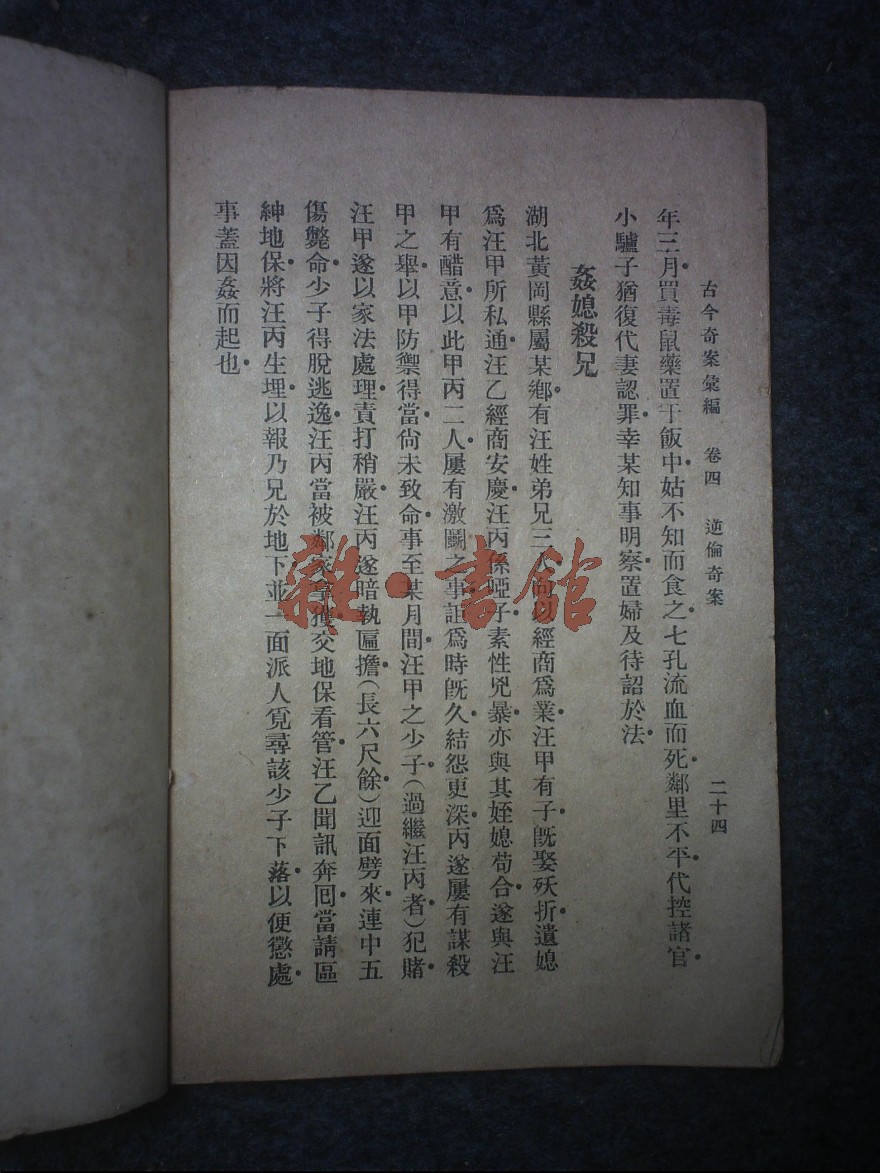 古今奇案彙編　卷四　逆倫奇案　二十四
年三月買毒鼠藥置于飯中姑不知而食之七孔流血而死鄰里不平代控諸官
小驢子猶復代妻認罪幸某知事明察置婦及待詔於法
姦媳殺兄
湖北黃岡縣屬某鄕有汪姓弟兄三人向以經商爲業汪甲有子旣娶殀折遺媳
爲汪甲所私通汪乙經商安慶汪丙係啞子素性兇暴亦與其姪媳苟合遂與汪
甲有醋意以此甲丙二人屢有激鬭之事詎爲時旣久結怨更深丙遂屢有謀殺
甲之舉以甲防禦得當尙未致命事至某月間汪甲之少子（過繼汪丙者）犯賭
汪甲遂以家法處理責打稍嚴汪丙遂暗執匾擔（長六尺餘）迎面劈來連中五
傷斃命少子得脫逃逸汪丙當被鄰家拿獲交地保看管汪乙聞訊奔囘當請區
紳地保將汪丙生埋以報乃兄於地下並一面派人覓尋該少子下落以便懲處
事蓋因姦而起也
雜·書館